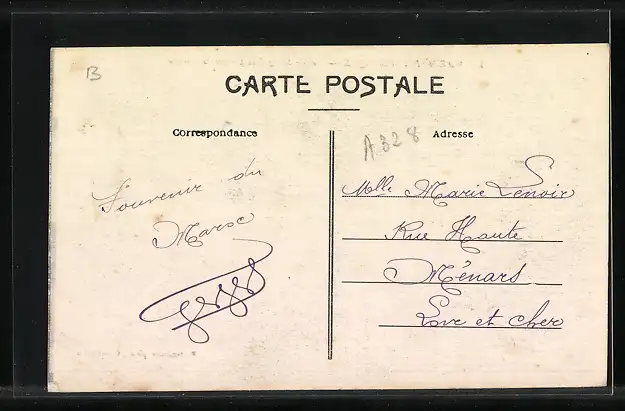 B
CARTE POSTALE
Correspondance
Adresse
A328
Souvenir du
Maroc
Mlle Marie Lenoir
Rue Haute
Ménars
Loir et cher